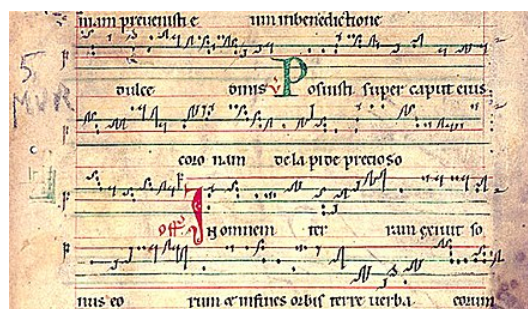 mam prevenisti e um inbenedictione
dulce dinis V Posuisti super caput eius
5 MVR
coro nam de lapide precioso
off Inomnem ter ram exivit so
nus eo rum & infines orbis terre verba eorum